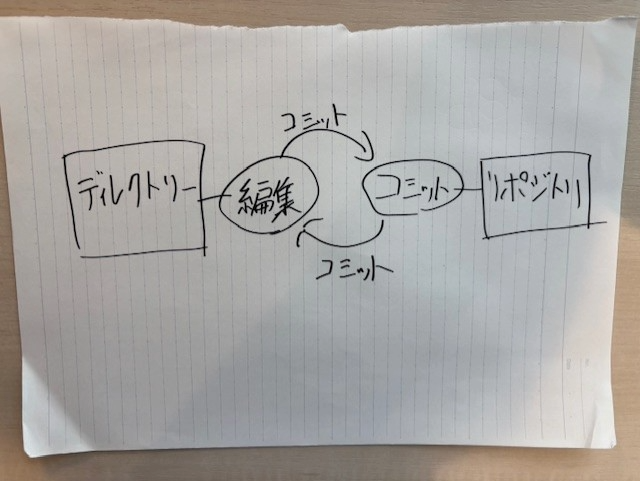 コミット
ディレクトリー
編集
コミット
リポジトリ
コミット